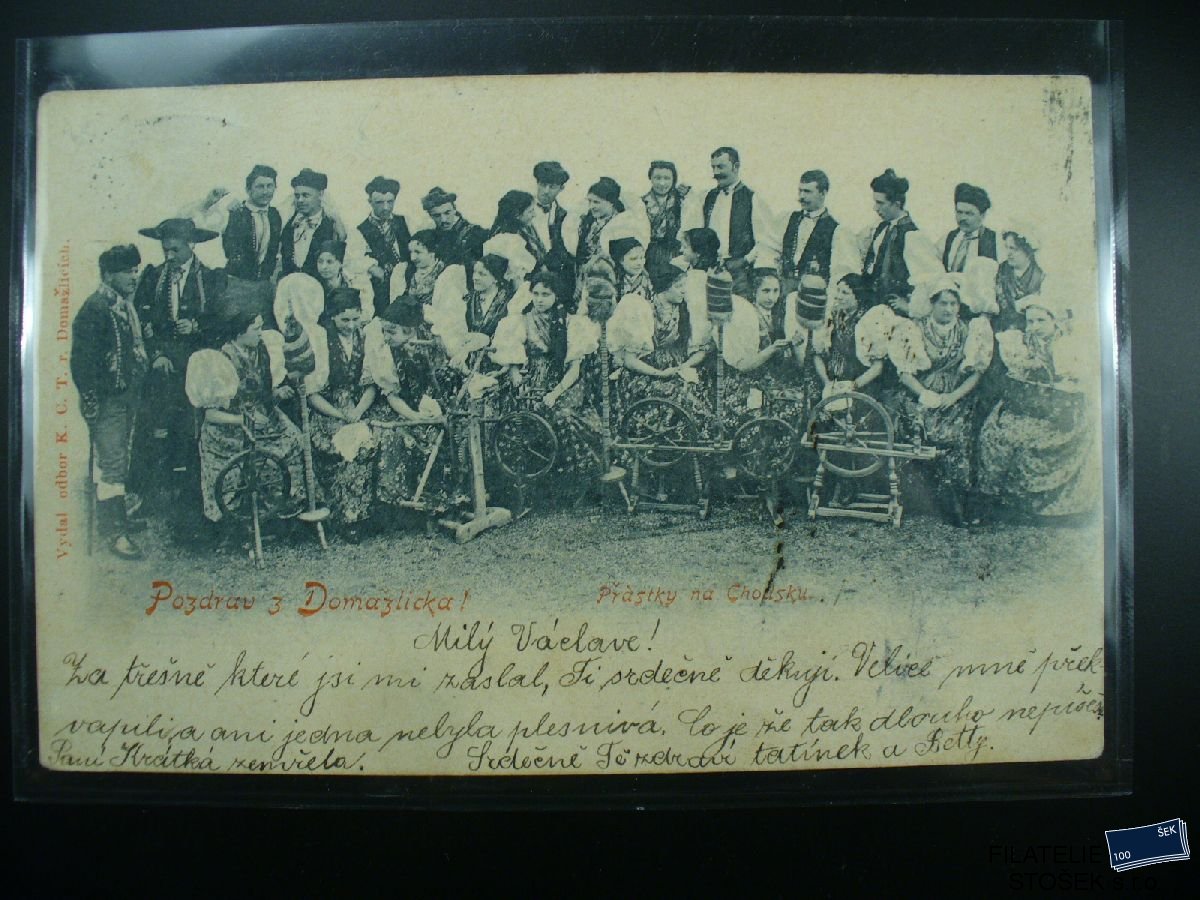 Vydal odbor K. Č. T. v Domažlicích.
Pozdrav z Domažlicka!
Přástky na Chodsku.
Milý Václave!
Za třešně které jsi mi zaslal, Ti srdečně děkuji. Velice mně přek
vapili, a ani jedna nebyla plesnivá. Co je že tak dlouho nepíšeš
Paní Krátká zemřela. Srdečně Tě zdraví tatínek a Betty.
100 ŠEK
FILATELIE
STOŠEK s.r.o.